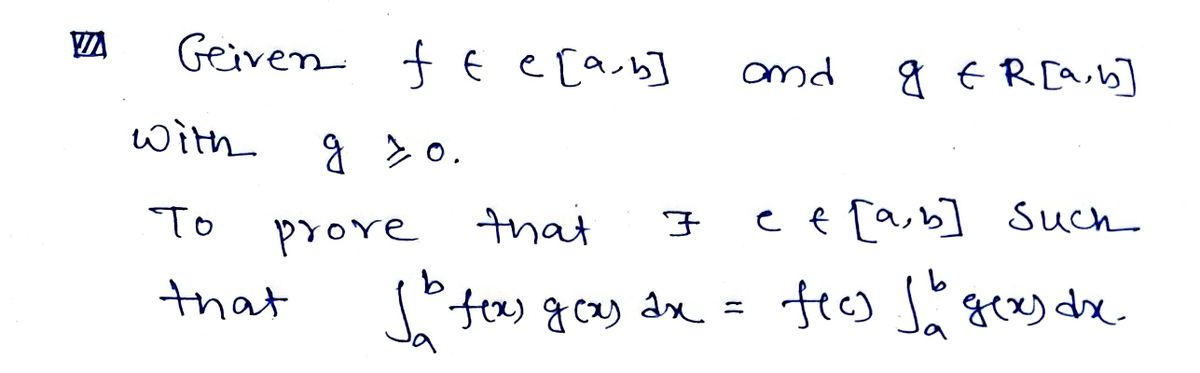 Geiven f ∈ c [a,b] and g ∈ R[a,b]
with g ≥ 0.
To prove that ∃ c ∈ [a,b] such
that ∫_a^b f(x) g(x) dx = f(c) ∫_a^b g(x) dx.